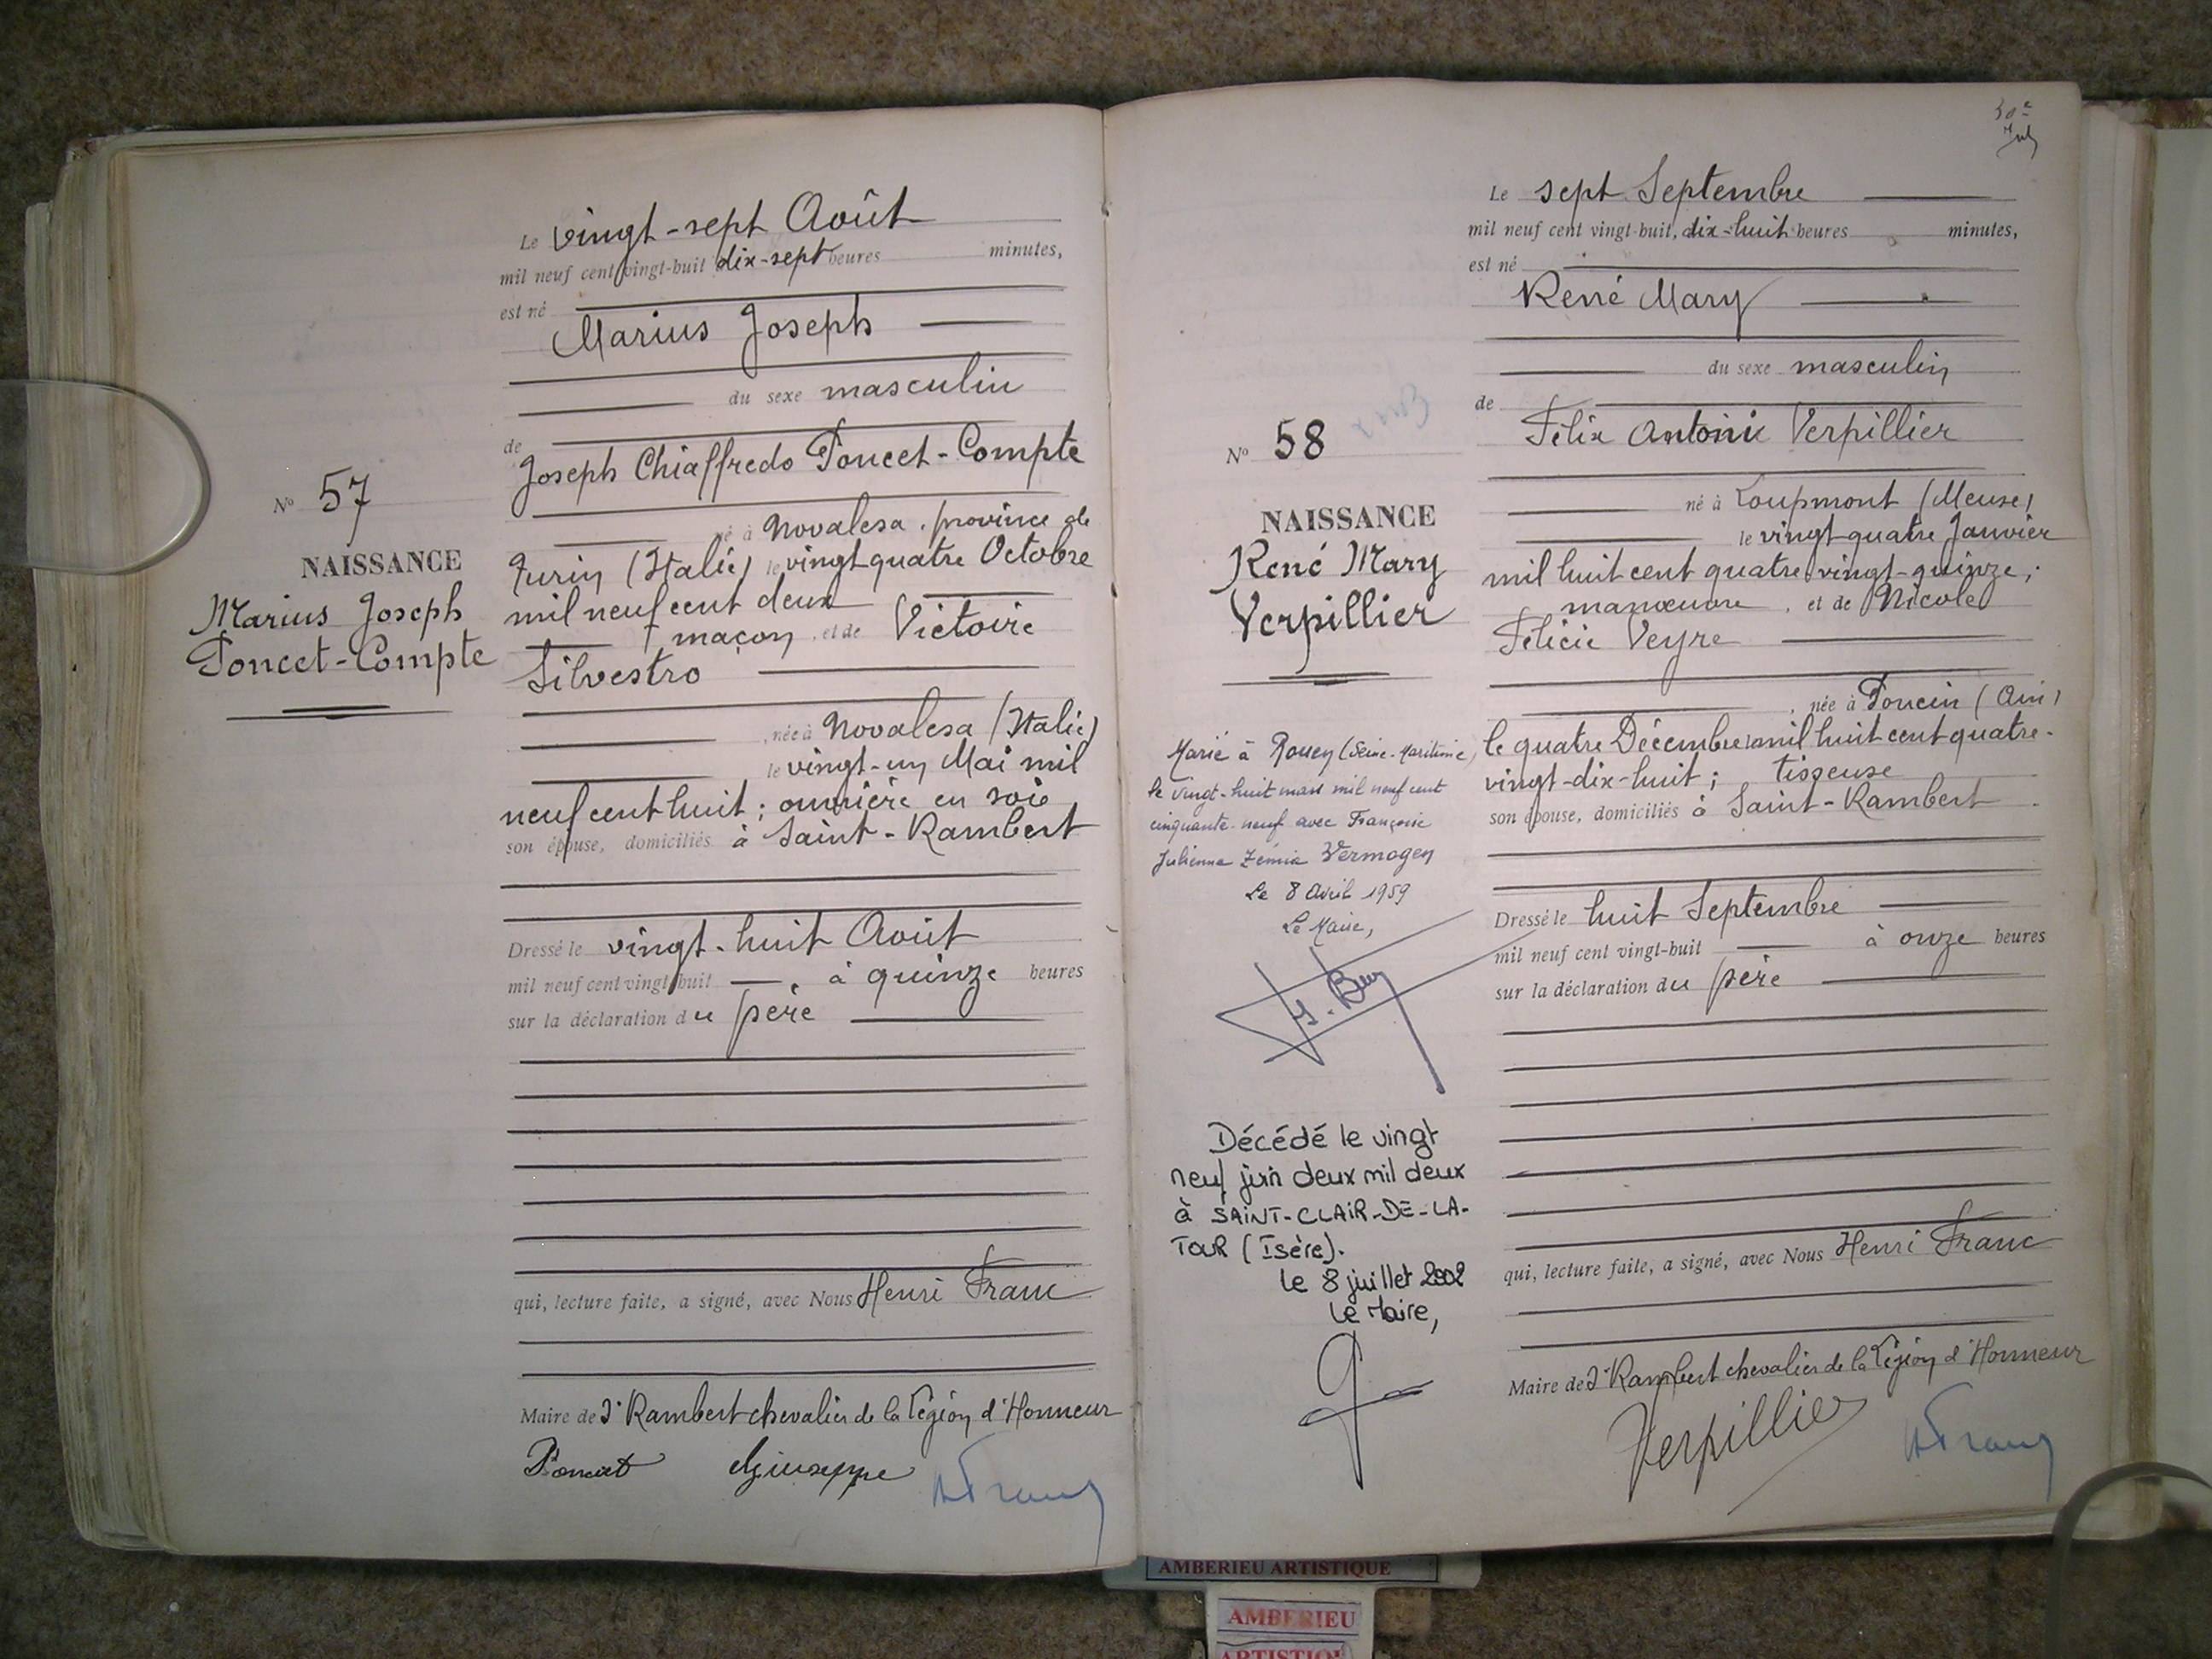 Le vingt-sept Août
mil neuf cent vingt-huit dix-sept heures minutes,
est né
Marius Joseph
du sexe masculin
de
Joseph Chiaffredo Poncet-Compte
né à Novalesa, province de
Turin (Italie) le vingt quatre Octobre
mil neuf cent deux
maçon, et de Victoire
Silvestro
, née à Novalesa (Italie)
le vingt-un Mai mil
neuf cent huit ; ouvrière en soie
son épouse, domiciliés à Saint-Rambert
Dressé le vingt-huit Août
mil neuf cent vingt-huit , à quinze heures
sur la déclaration du père
qui, lecture faite, a signé, avec Nous Henri Franc
Maire de St Rambert chevalier de la Légion d'Honneur
Poncet Giuseppe HFranc
No 57
NAISSANCE
Marius Joseph
Poncet-Compte
Le sept Septembre
mil neuf cent vingt-huit, dix-huit heures minutes,
est né
René Mary
du sexe masculin
de
Félix Antoine Verpillier
né à Loupmont (Meuse)
le vingt quatre Janvier
mil huit cent quatre vingt-quinze ;
manœuvre , et de Nicole
Félicie Veyre
, née à Poncin (Ain)
le quatre Décembre mil huit cent quatre-
vingt-dix-huit ; tisseuse
son épouse, domiciliés à Saint-Rambert
Dressé le huit Septembre
mil neuf cent vingt-huit à onze heures
sur la déclaration du père
qui, lecture faite, a signé, avec Nous Henri Franc
Maire de St Rambert chevalier de la Légion d'Honneur
Verpillier HFranc
No 58
NAISSANCE
René Mary
Verpillier
Marié à Rouen (Seine-Maritime)
le vingt-huit mars mil neuf cent
cinquante-neuf avec Françoise
Julienne Zémia Vermogen
Le 8 Avril 1959
Le Maire,
Décédé le vingt
neuf juin deux mil deux
à SAINT-CLAIR-DE-LA-
TOUR (Isère).
le 8 juillet 2002
Le Maire,
AMBERIEU ARTISTIQUE
AMBERIEU
ARTISTIQUE